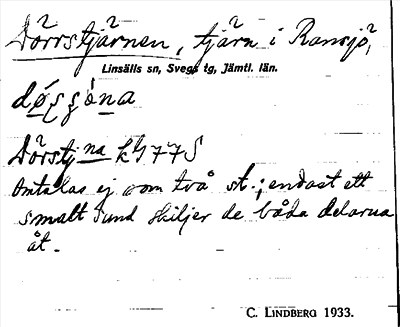 Dörrstjärnen, tjärn i Ransjö,
Linsälls sn, Svegs tg, Jämtl. län.
Dörstj na k G77S
Omtalas ej som två st.; endast ett
smalt sund skiljer de båda delarna
åt.
C. LINDBERG 1933.